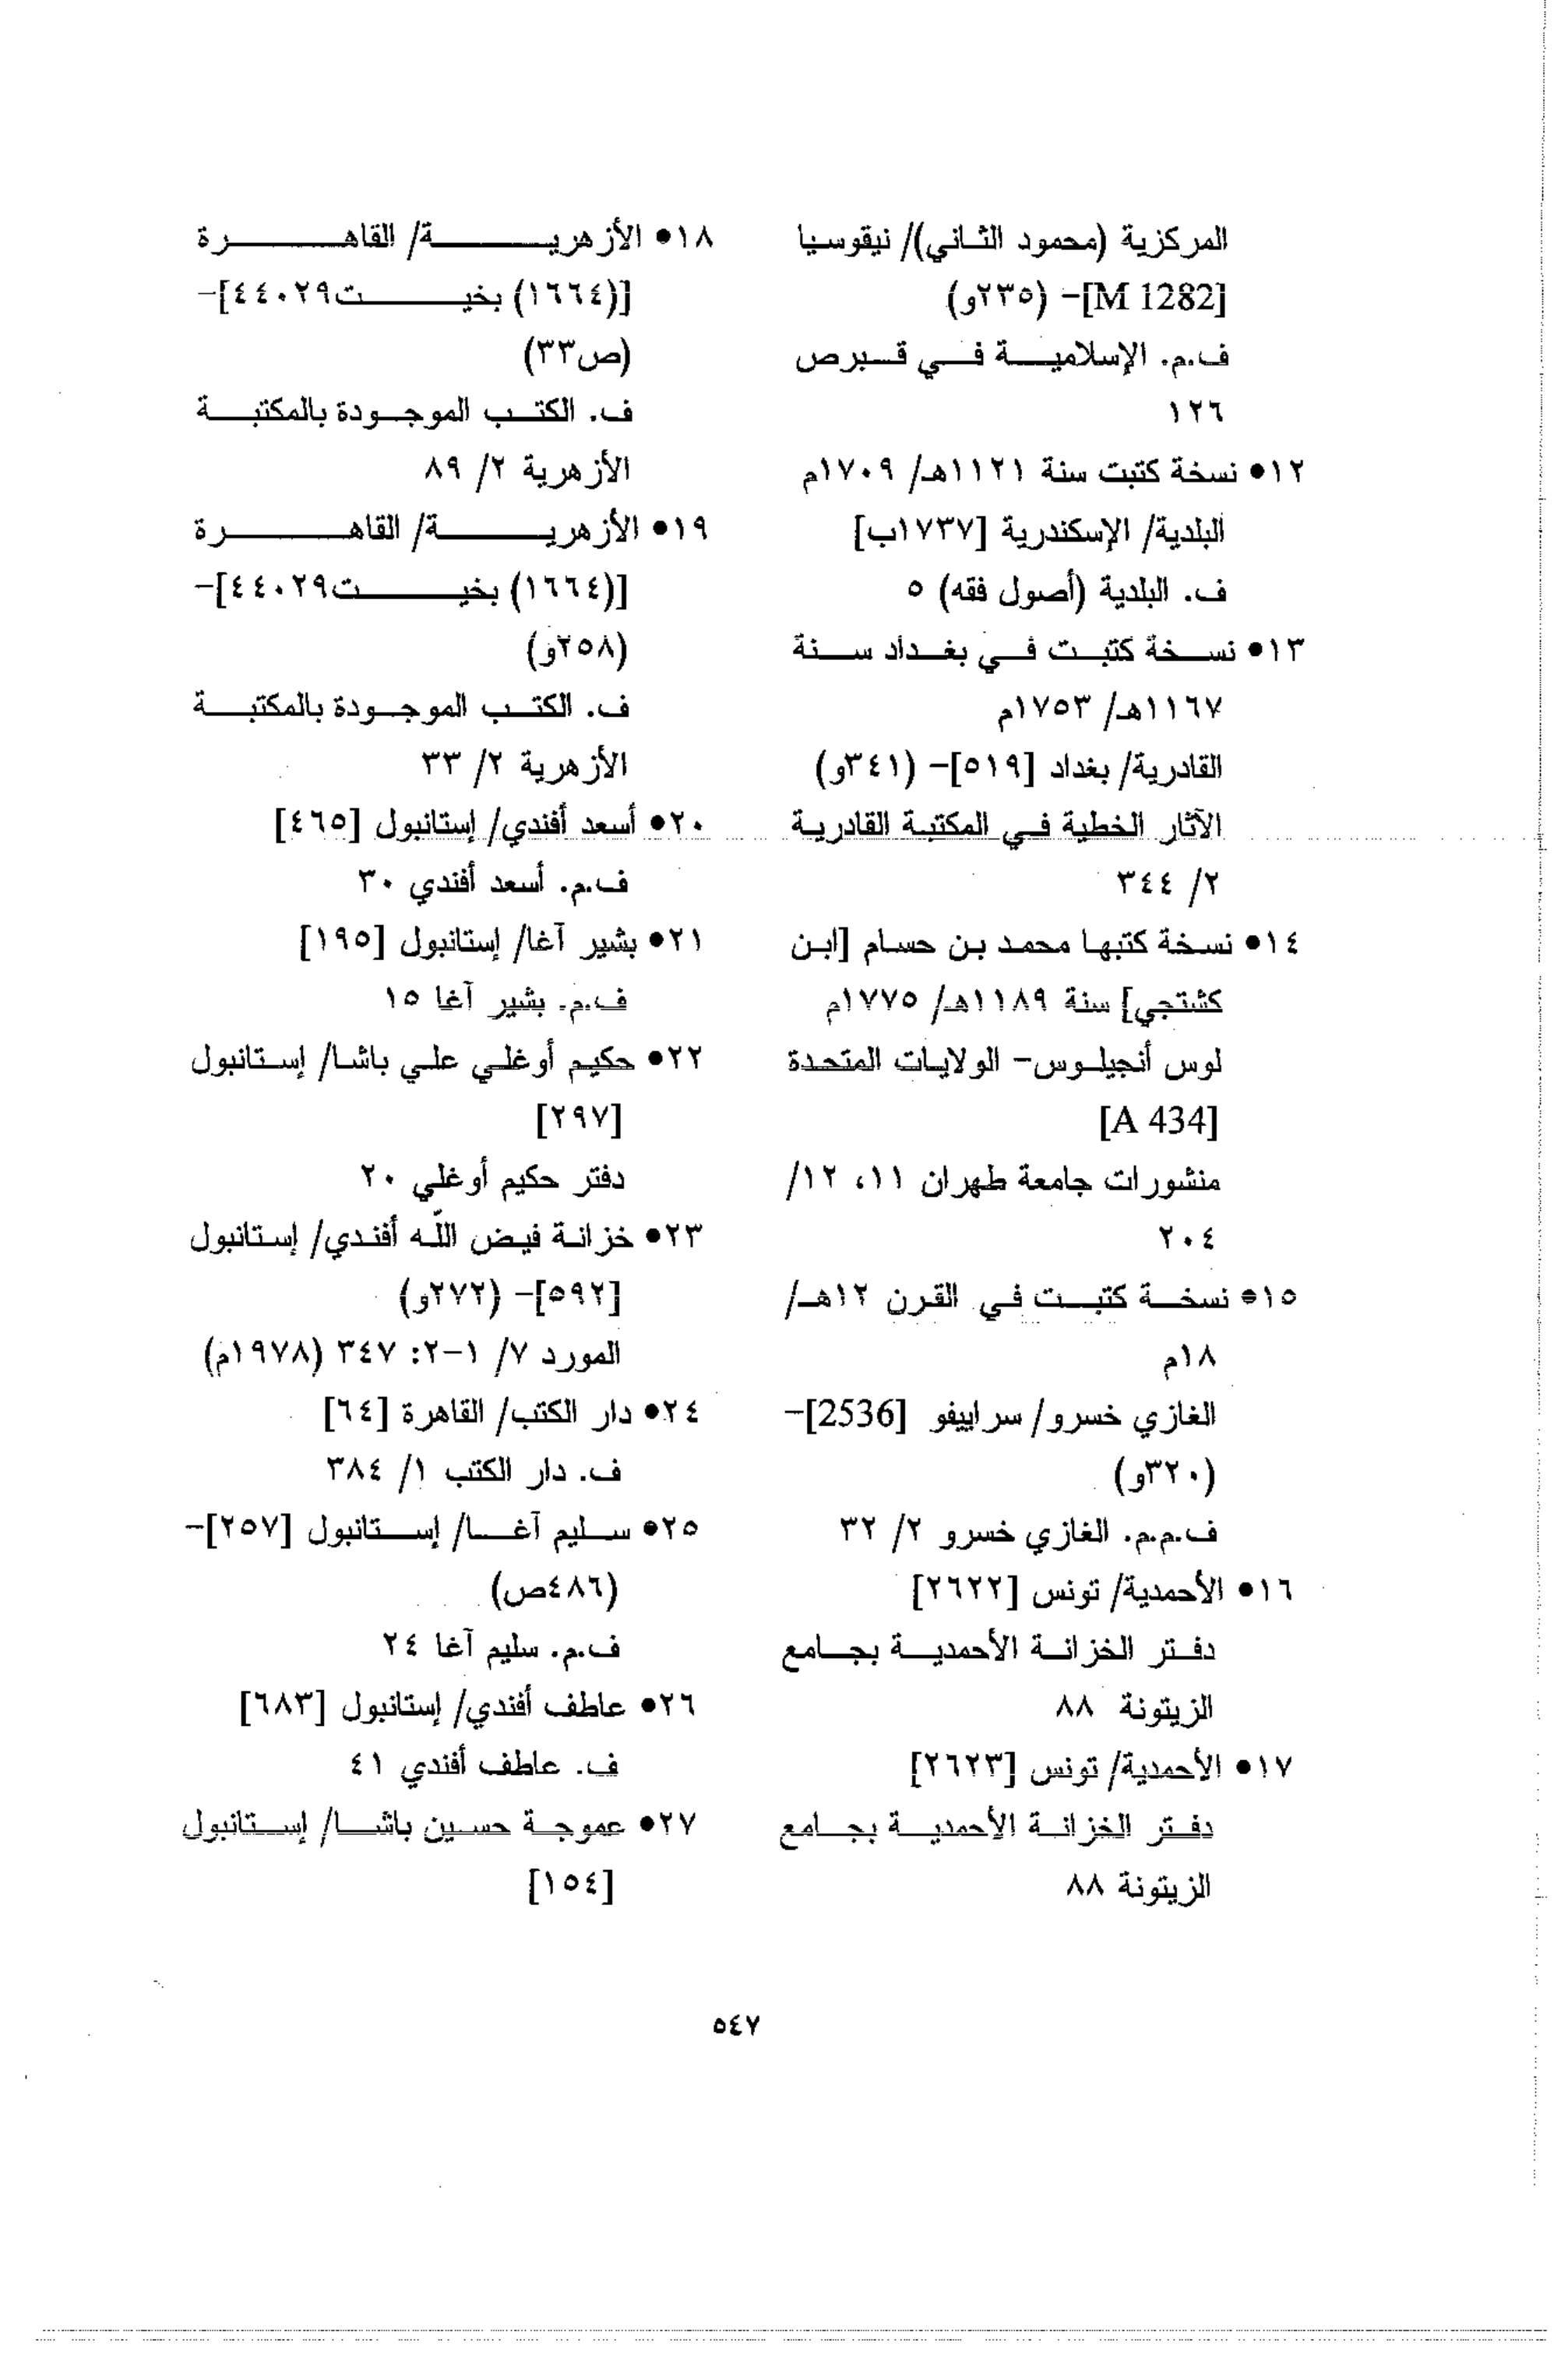 المركزية (محمود الثاني)/ نيقوسيا
[M 1282]- (٢٣٥و)
ف.م. الإسلامية في قبرص
١٢٦
١٢• نسخة كتبت سنة ١١٢١هـ/ ١٧٠٩م
البلدية/ الإسكندرية [١٧٣٧ب]
ف. البلدية (أصول فقه) ٥
١٣• نسخة كتبت في بغداد سنة
١١٦٧هـ/ ١٧٥٣م
القادرية/ بغداد [٥١٩]- (٣٤١و)
الآثار الخطية في المكتبة القادرية
٢/ ٣٤٤
١٤• نسخة كتبها محمد بن حسام [ابن
كشتجي] سنة ١١٨٩هـ/ ١٧٧٥م
لوس أنجيلوس- الولايات المتحدة
[A 434]
منشورات جامعة طهران ١١، ١٢/
٢٠٤
١٥• نسخة كتبت في القرن ١٢هـ/
١٨م
الغازي خسرو/ سراييفو [2536]-
(٣٢٠و)
ف.م.م. الغازي خسرو ٢/ ٣٢
١٦• الأحمدية/ تونس [٢٦٢٢]
دفتر الخزانة الأحمدية بجامع
الزيتونة ٨٨
١٧• الأحمدية/ تونس [٢٦٢٣]
دفتر الخزانة الأحمدية بجامع
الزيتونة ٨٨
١٨• الأزهرية/ القاهرة
[(١٦٦٤) بخيت٤٤٠٢٩]-
(ص٣٣)
ف. الكتب الموجودة بالمكتبة
الأزهرية ٢/ ٨٩
١٩• الأزهرية/ القاهرة
[(١٦٦٤) بخيت٤٤٠٢٩]-
(٢٥٨و)
ف. الكتب الموجودة بالمكتبة
الأزهرية ٢/ ٣٣
٢٠• أسعد أفندي/ إستانبول [٤٦٥]
ف.م. أسعد أفندي ٣٠
٢١• بشير آغا/ إستانبول [١٩٥]
ف.م. بشير آغا ١٥
٢٢• حكيم أوغلي علي باشا/ إستانبول
[٢٩٧]
دفتر حكيم أوغلي ٢٠
٢٣• خزانة فيض اللّه أفندي/ إستانبول
[٥٩٢]- (٢٧٢و)
المورد ٧/ ١-٢: ٣٤٧ (١٩٧٨م)
٢٤• دار الكتب/ القاهرة [٦٤]
ف. دار الكتب ١/ ٣٨٤
٢٥• سليم آغا/ إستانبول [٢٥٧]-
(٤٨٦ص)
ف.م. سليم آغا ٢٤
٢٦• عاطف أفندي/ إستانبول [٦٨٣]
ف. عاطف أفندي ٤١
٢٧• عموجة حسين باشا/ إستانبول
[١٥٤]
٥٤٧